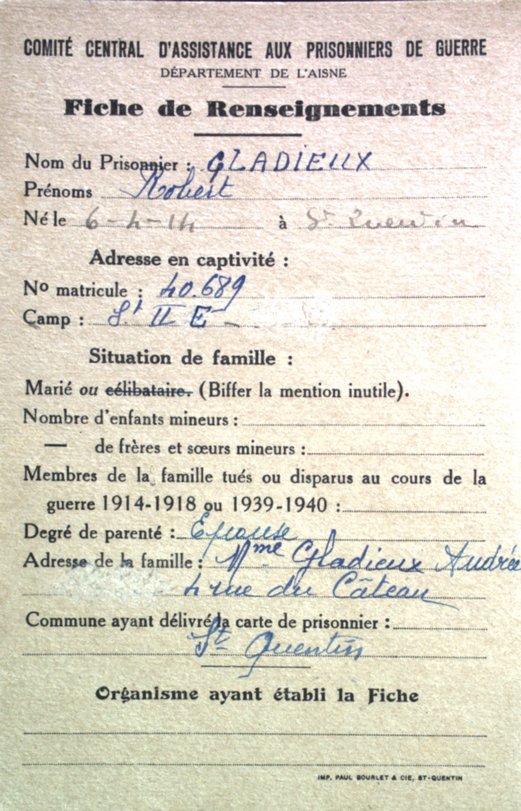 COMITÉ CENTRAL D'ASSISTANCE AUX PRISONNIERS DE GUERRE
DÉPARTEMENT DE L'AISNE
Fiche de Renseignements
Nom du Prisonnier : GLADIEUX
Prénoms Robert
Né le 6-4-14 à St Quentin
Adresse en captivité :
No matricule : 40.689
Camp : St II E
Situation de famille :
Marié ou célibataire. (Biffer la mention inutile).
Nombre d'enfants mineurs :
— de frères et sœurs mineurs :
Membres de la famille tués ou disparus au cours de la
guerre 1914-1918 ou 1939-1940 :
Degré de parenté : Epouse
Adresse de la famille : Mme Gladieux Andrée
4 rue du Câteau
Commune ayant délivré la carte de prisonnier :
St Quentin
Organisme ayant établi la Fiche
IMP. PAUL BOURLET & CIE, ST-QUENTIN